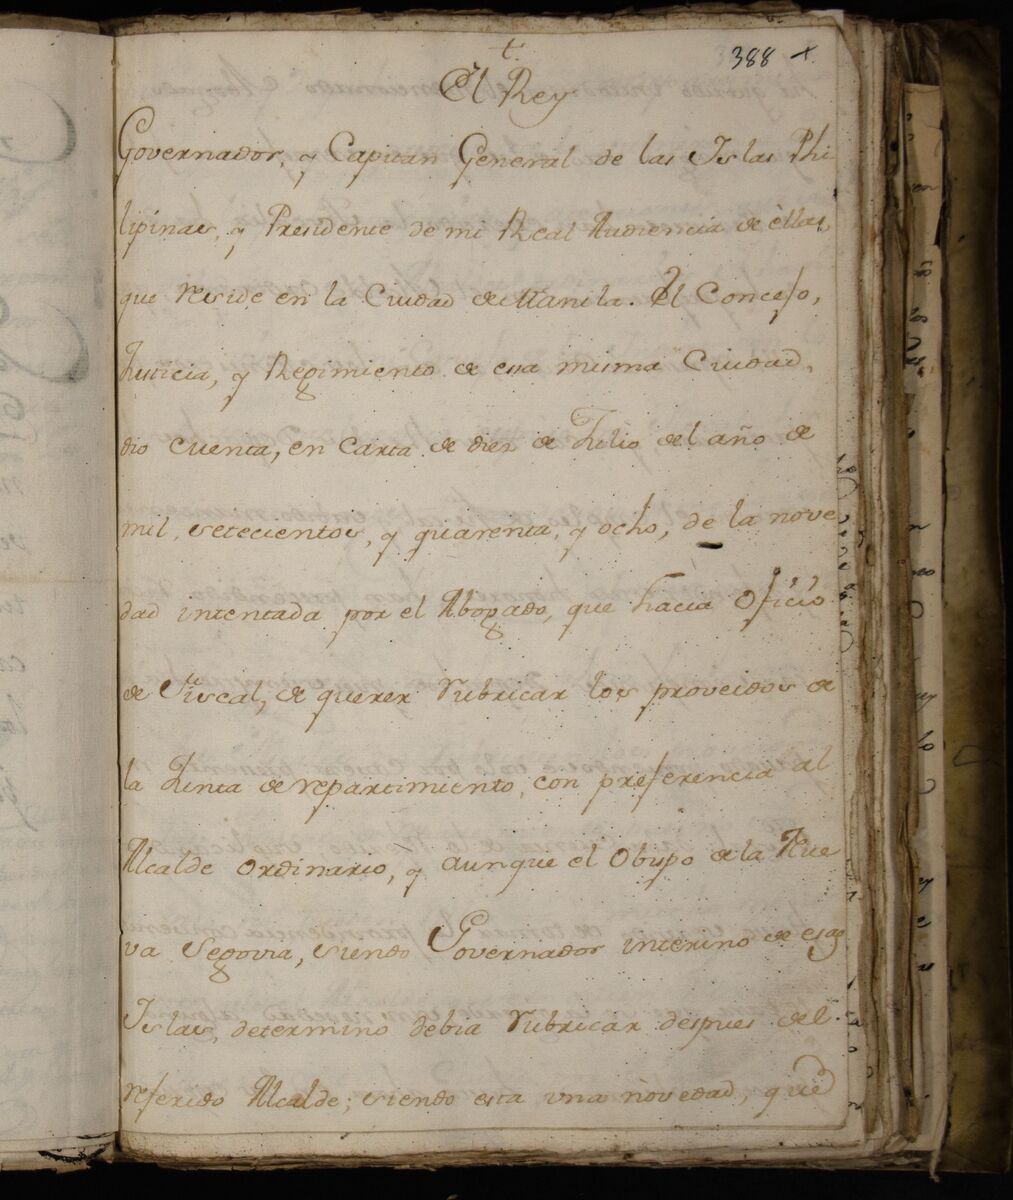 t.
388 +.
El Rey
Governador, y Capitan General de las Islas Phi
lipinas, y Presidente de mi Real Audiencia de èllas,
que reside en la Ciudad de Manila. El Concejo,
Justicia, y Regimiento de esa misma Ciudad,
dio cuenta, en carta de diez de Julio del año de
mil, setecientos, y quarenta, y ocho, de la nove
dad intentada por el Abogado, que hacia Oficio
de Fiscal, de querer rubricar los proveidos de
la Junta de repartimiento, con preferencia al
Alcalde Ordinario, y aunque el Obispo de la Nue
va Segovia, siendo Governador interino de esas
Islas, determino debia rubricar despues del
referido Alcalde; siendo esta una novedad, que